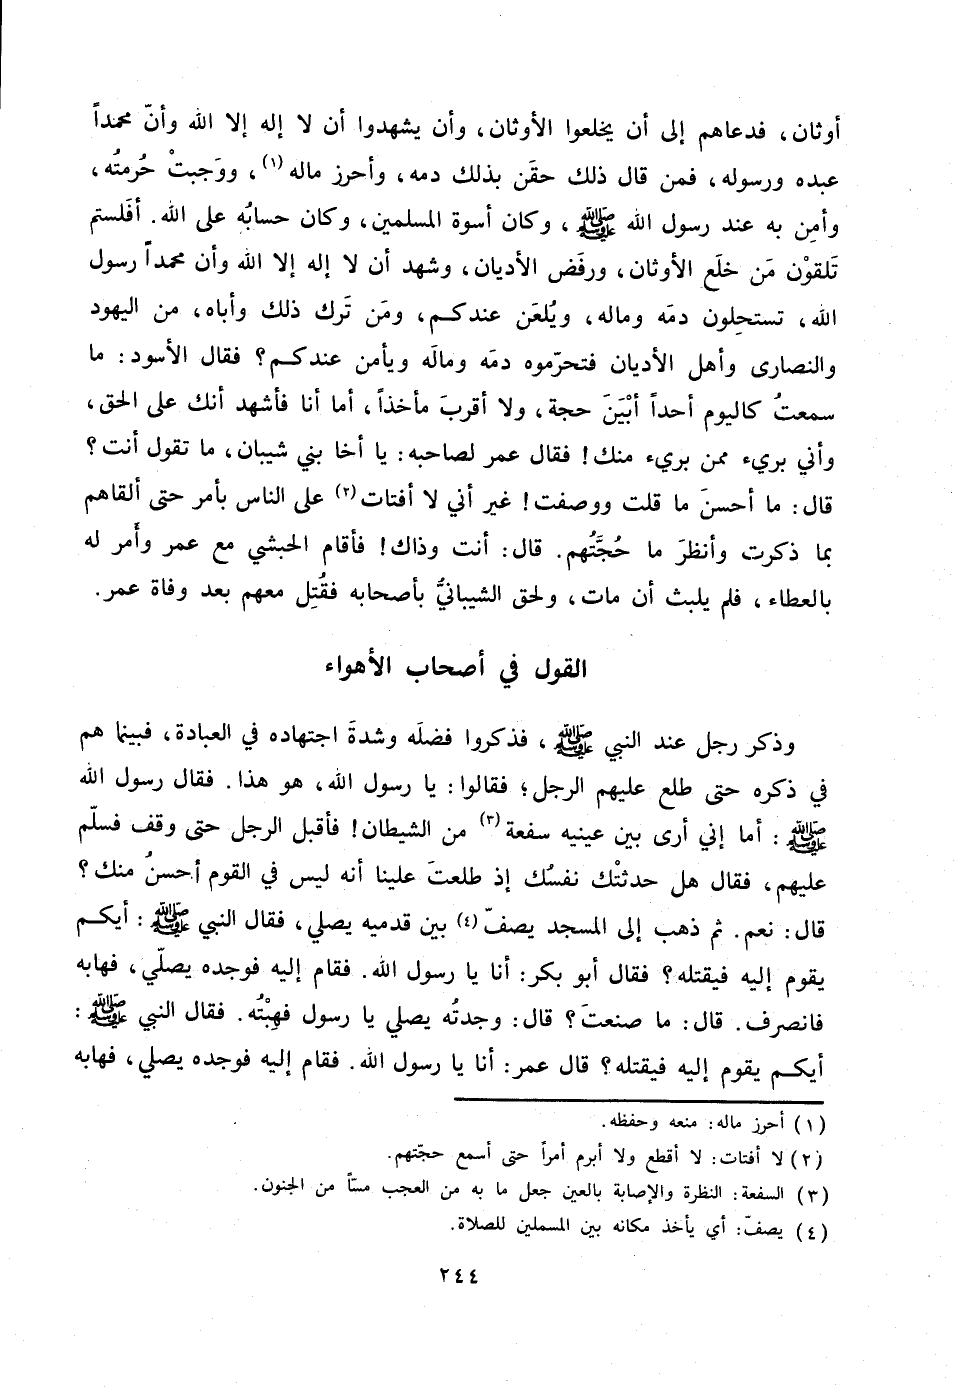 أوثان، فدعاهم إلى أن يخلعوا الأوثان، وأن يشهدوا أن لا إله إلا الله وأنّ محمداً
عبده ورسوله، فمن قال ذلك حقَن بذلك دمه، وأحرز ماله (١)، ووَجبتْ حُرمتُه،
وأمِن به عند رسول الله ﷺ، وكان أسوة المسلمين، وكان حسابُه على الله. أفَلستم
تَلقوْن مَن خلَع الأوثان، ورفَض الأديان، وشهد أن لا إله إلا الله وأن محمداً رسول
الله، تستحلون دمَه وماله، ويُلعَن عندكم، ومَن تَرك ذلك وأباه، من اليهود
والنصارى وأهل الأديان فتحرّموه دمَه ومالَه ويأمن عندكم؟ فقال الأسود: ما
سمعتُ كاليوم أحداً أبْيَنَ حجة، ولا أقربَ مأخذاً، أما أنا فأشهد أنك على الحق،
وأني بريء ممن بريء منك! فقال عمر لصاحبه: يا أخا بني شيبان، ما تقول أنت؟
قال: ما أحسنَ ما قلت ووصفت! غير أني لا أفتات (٢) على الناس بأمر حتى ألقاهم
بما ذكرت وأنظرَ ما حُجَّتُهم. قال: أنت وذاك! فأقام الحبشي مع عمر وأَمر له
بالعطاء، فلم يلبث أن مات، ولحق الشيبانيُّ بأصحابه فقُتِل معهم بعد وفاة عمر.
القول في أصحاب الأهواء
وذكر رجل عند النبي ﷺ، فذكروا فضلَه وشدةَ اجتهاده في العبادة، فبينما هم
في ذكره حتى طلع عليهم الرجل؛ فقالوا: يا رسول الله، هو هذا. فقال رسول الله
ﷺ: أما إني أرى بين عينيه سفعة (٣) من الشيطان! فأقبل الرجل حتى وقف فسلّم
عليهم، فقال هل حدثتْك نفسُك إذ طلعتَ علينا أنه ليس في القوم أحسنُ منك؟
قال: نعم. ثم ذهب إلى المسجد يصفّ (٤) بين قدميه يصلي، فقال النبي ﷺ: أيكم
يقوم إليه فيقتله؟ فقال أبو بكر: أنا يا رسول الله. فقام إليه فوجده يصلّي، فهابه
فانصرف. قال: ما صنعتَ؟ قال: وجدتُه يصلي يا رسول فهِبْتُه. فقال النبي ﷺ:
أيكم يقوم إليه فيقتله؟ قال عمر: أنا يا رسول الله. فقام إليه فوجده يصلي، فهابه
(١) أحرز ماله: منعه وحفظه.
(٢) لا أفتات: لا أقطع ولا أبرم أمراً حتى أسمع حجّتهم.
(٣) السفعة: النظرة والإصابة بالعين جعل ما به من العجب مسّاً من الجنون.
(٤) يصفّ: أي يأخذ مكانه بين المسملين للصلاة.
٢٤٤